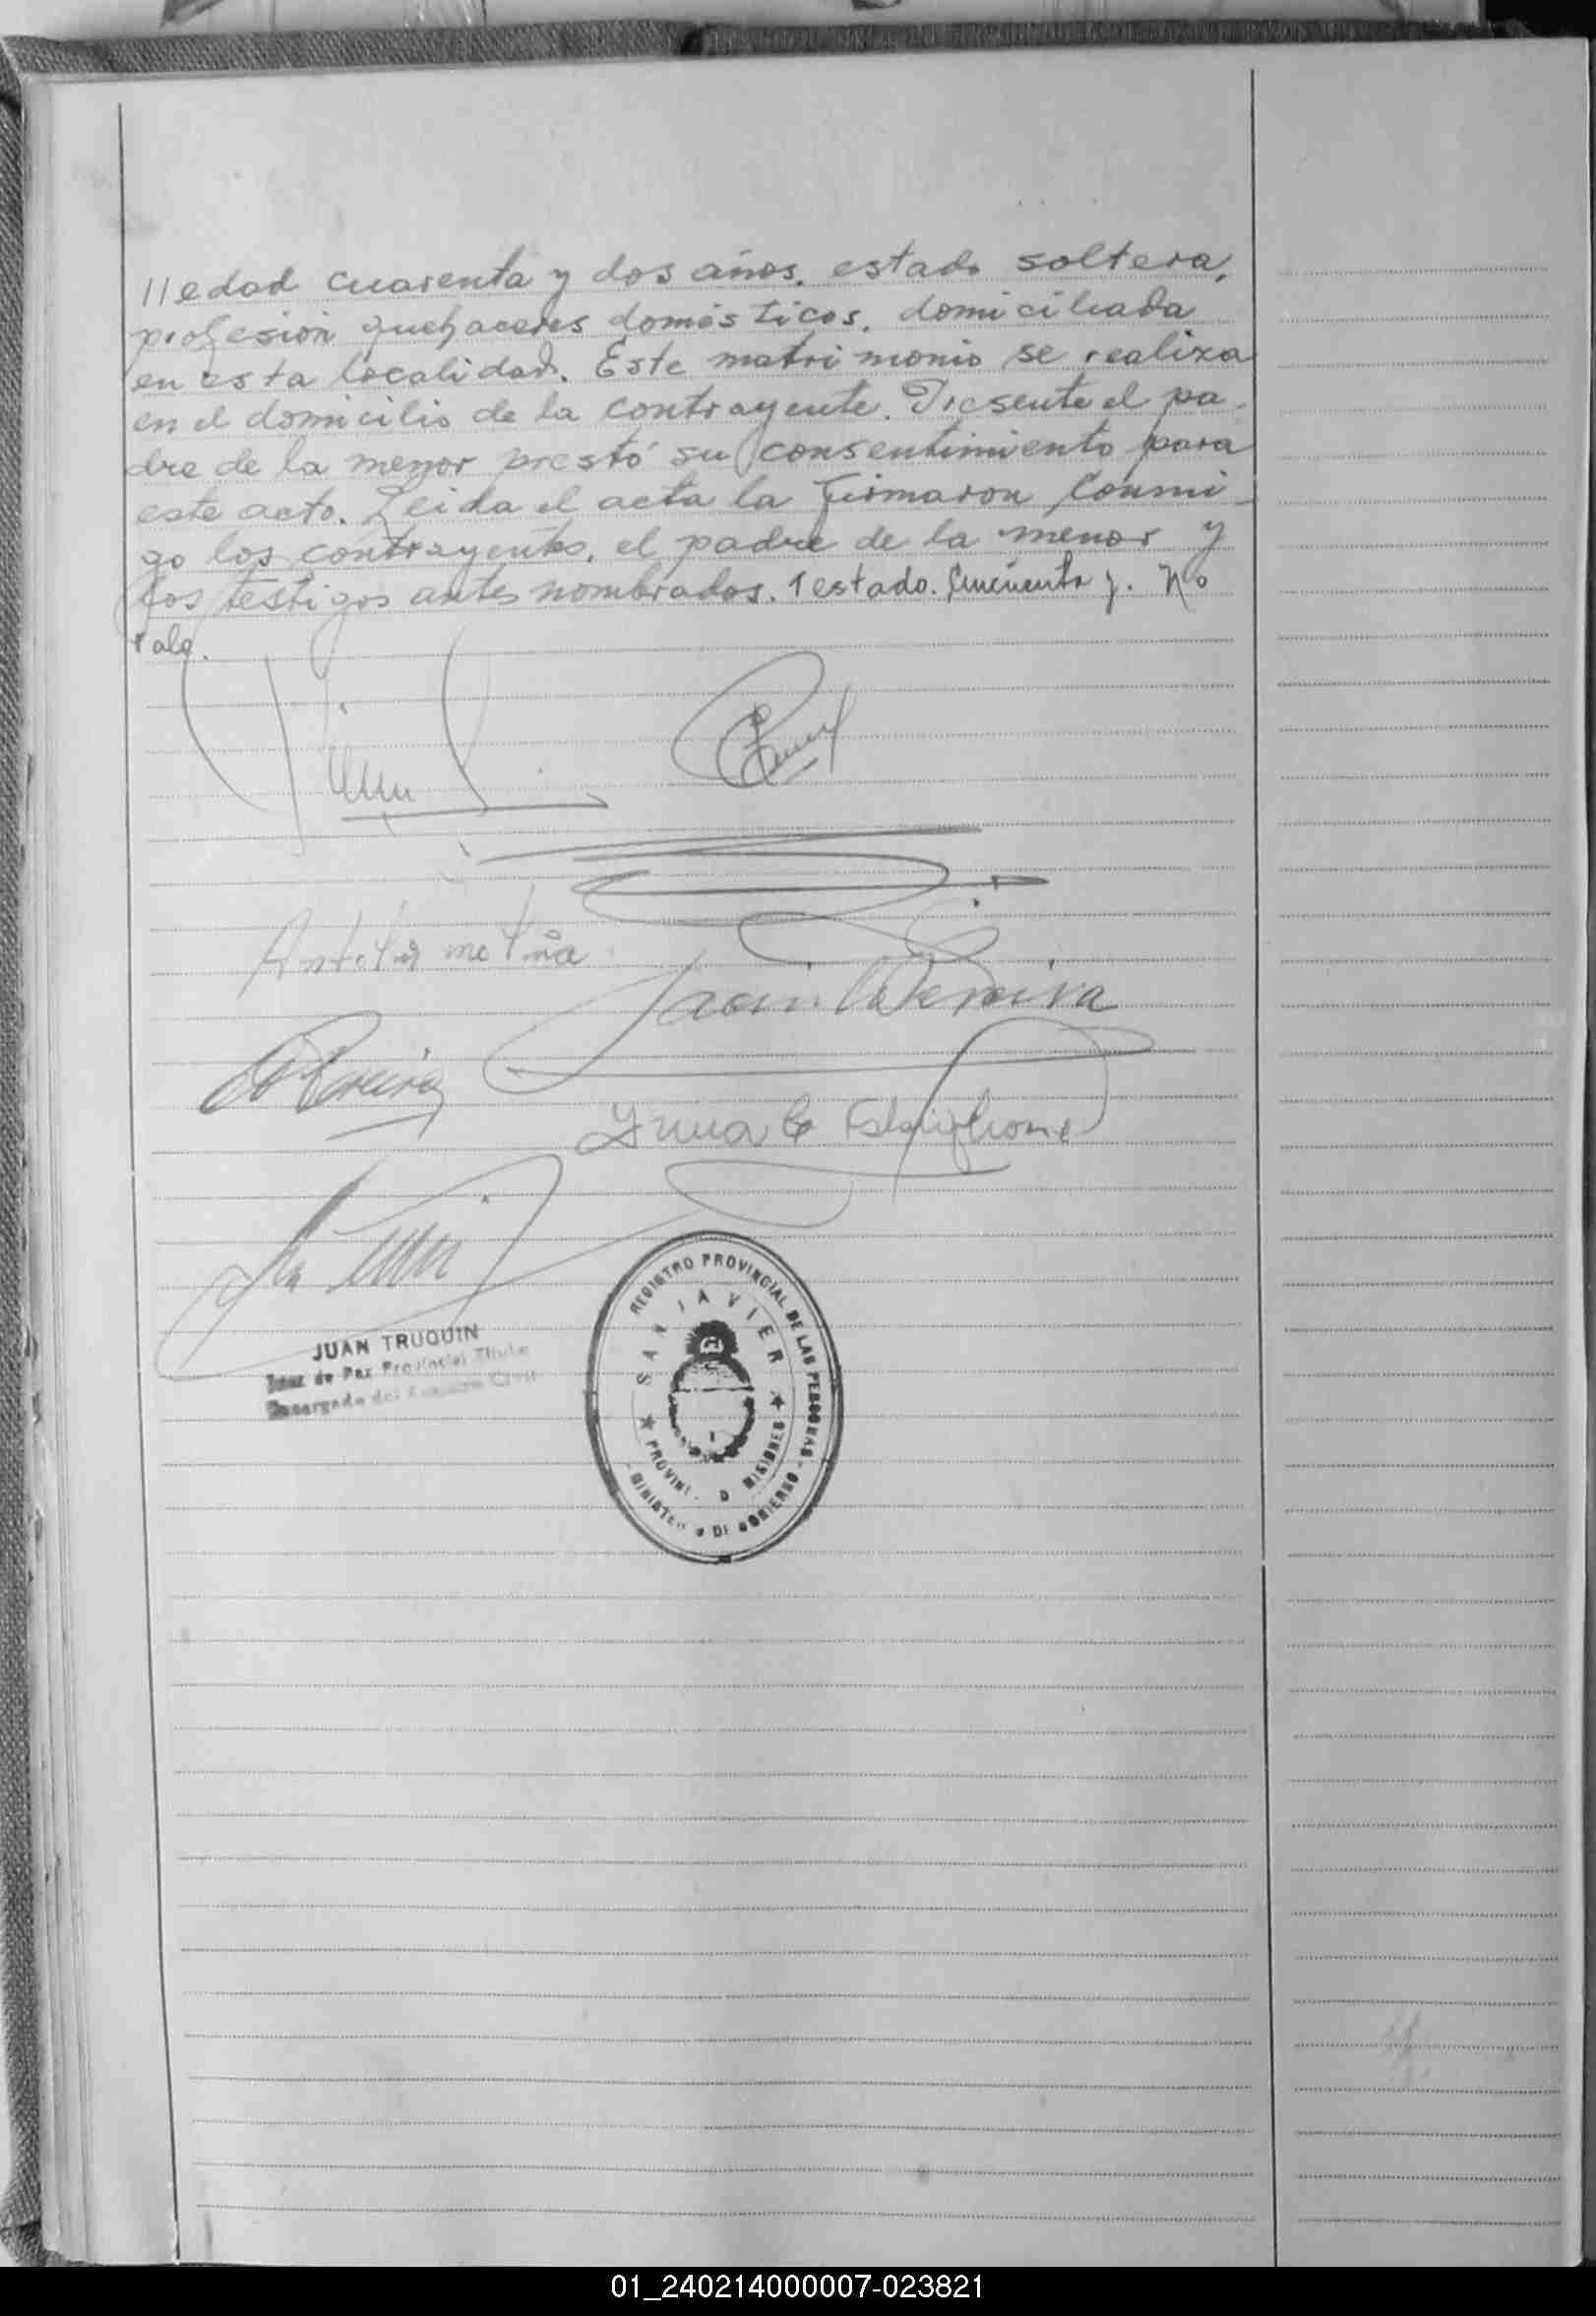 //edad cuarenta y dos años. estado soltera,
profesión quehaceres domésticos. domiciliada
en esta localidad. Este matrimonio se realiza
en el domicilio de la contrayente. Presente el pa-
dre de la menor prestó su consentimiento para
este acto. Leida el acta la firmaron conmi-
go los contrayentes, el padre de la menor y
los testigos antes nombrados. Testado. Cincuenta y. No
vale.
Pereira
JUAN TRUQUIN
Juez de Paz Provincial Titular
Encargado del Registro Civil
REGISTRO PROVINCIAL DE LAS PERSONAS - MINISTERIO DE GOBIERNO -
SAN JAVIER ★ PROVIN. D MISIONES ★
01_240214000007-023821